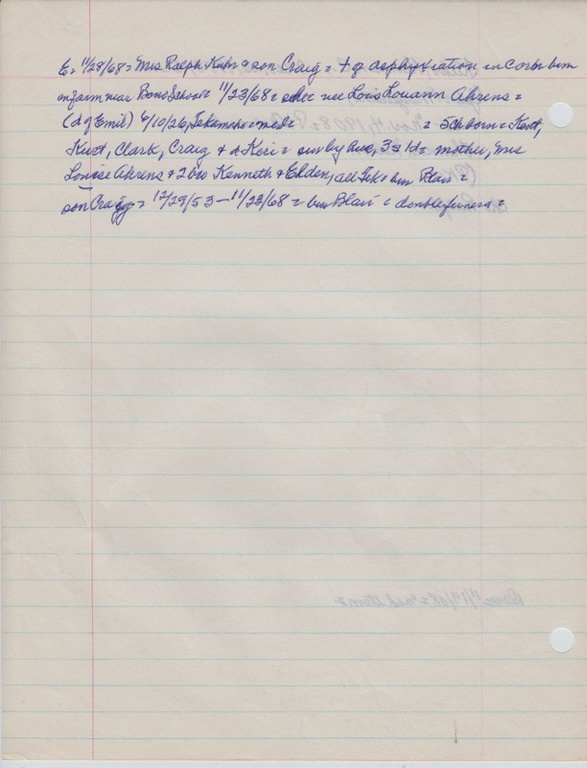 E = 11/28/68 = Mrs Ralph Kuhn & son Craig = + of asphyxiation in corn bin
on farm near Bono School = 11/23/68 = she = nee Lois Louann Ahrens =
(d of Emil) 6/10/26, Tekamah = med = = 5 ch born = Kent,
Kurt, Clark, Craig & d Keri = sur by hus, 3 s 1d = mother, Mrs
Louise Ahrens & 2 bro Kenneth & Elden, all Tek = bur Blair =
son Craig = 12/29/53 - 11/23/68 = bur Blair = double funeral =